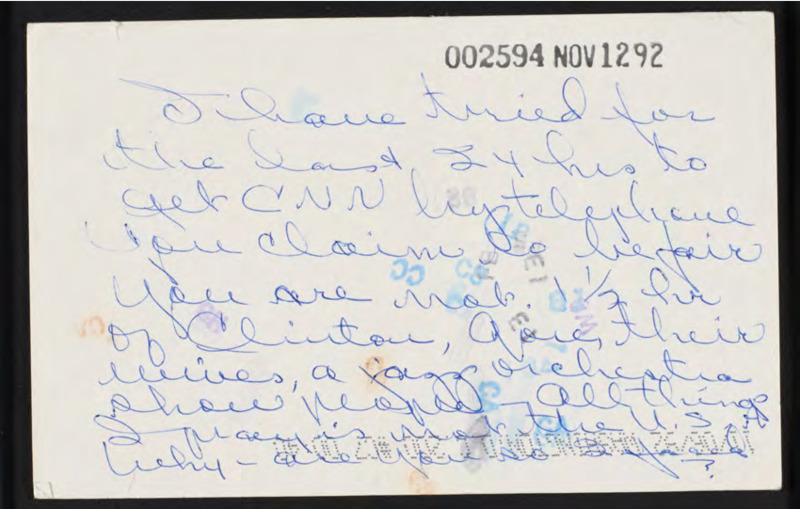 002594 NOV1292
I have tried for
the last 24 hrs to
get CNN by telephone
You claim to be fair
You are not. 1 1/2 hr
of Clinton, Gore, their
wives, a jazz orchestra
show people - All things
I pray is not the U.S.A.
Why - are you so
?